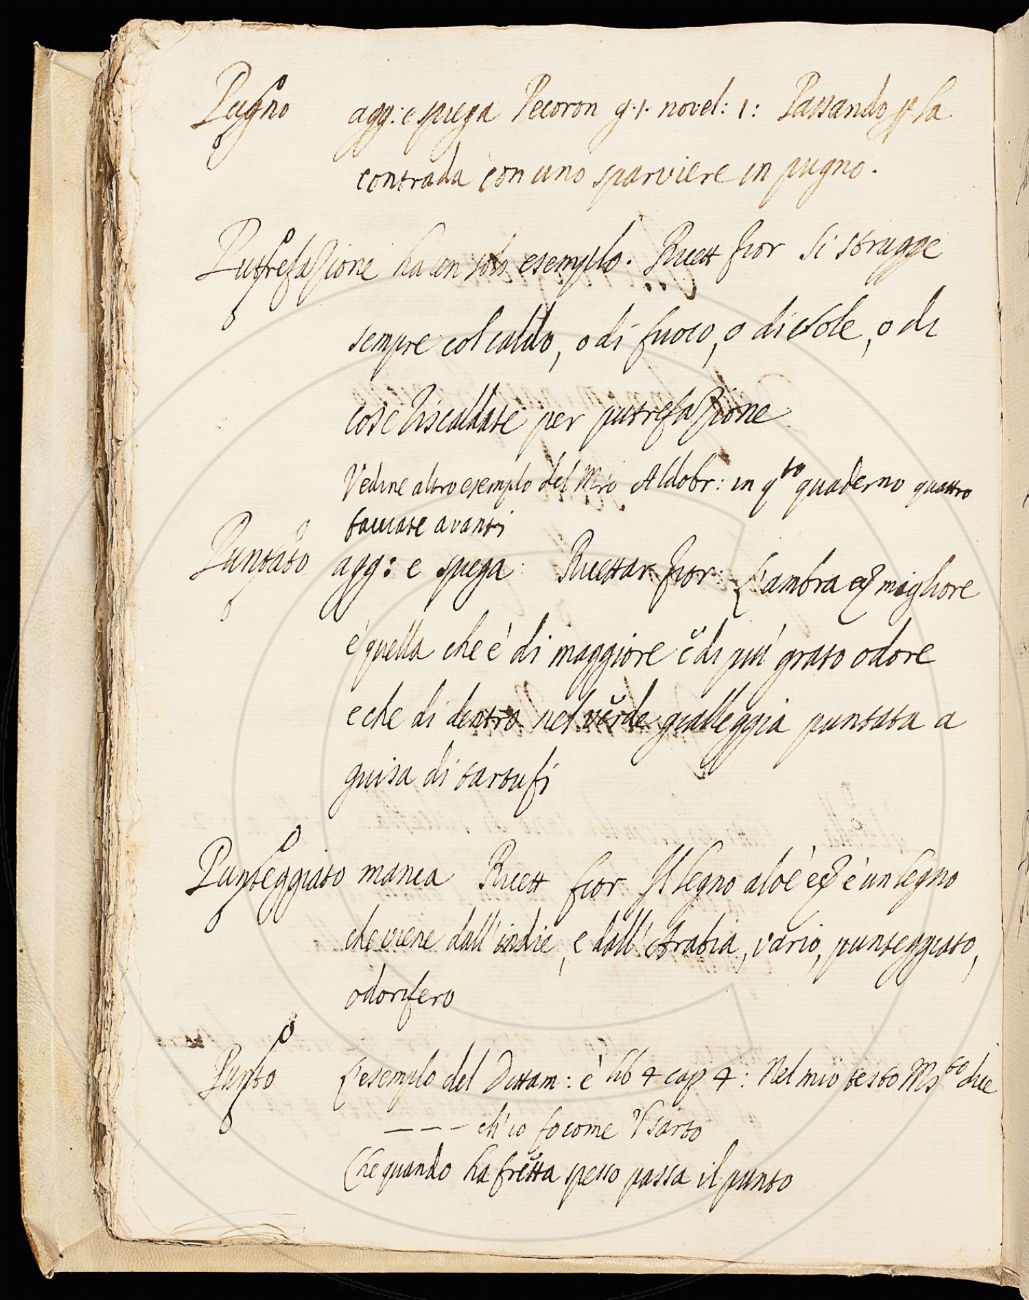 Pugno agg: e spiega Pecoron g. 1. novel: 1: Passando p la
contrada con uno sparviere in pugno.
Putrefazione ha un solo esemplo. Ricett Fior Si strugge
sempre col caldo, o di fuoco, o di sole, o di
cose riscaldate per putrefazione
Vedine altro esemplo del Mro Aldobr: in qto quaderno quattro
facciate avanti
Puntato agg: e spiega: Ricettar Fior: L'ambra migliore
è quella che è di maggiore e di più grato odore
e che di dentro nel verde gialleggia puntata a
guisa di tartufi
Punteggiato manca Ricett fior Il legno aloè è un legno
che viene dall'indie, e dall'Arabia, vario, punteggiato,
odorifero
Punto L'esemplo del Dittam: è lib 4 cap 4: Nel mio testo Msto dice
- - - - ch'io fo come 'l sarto
Che quando ha fretta spesso passa il punto